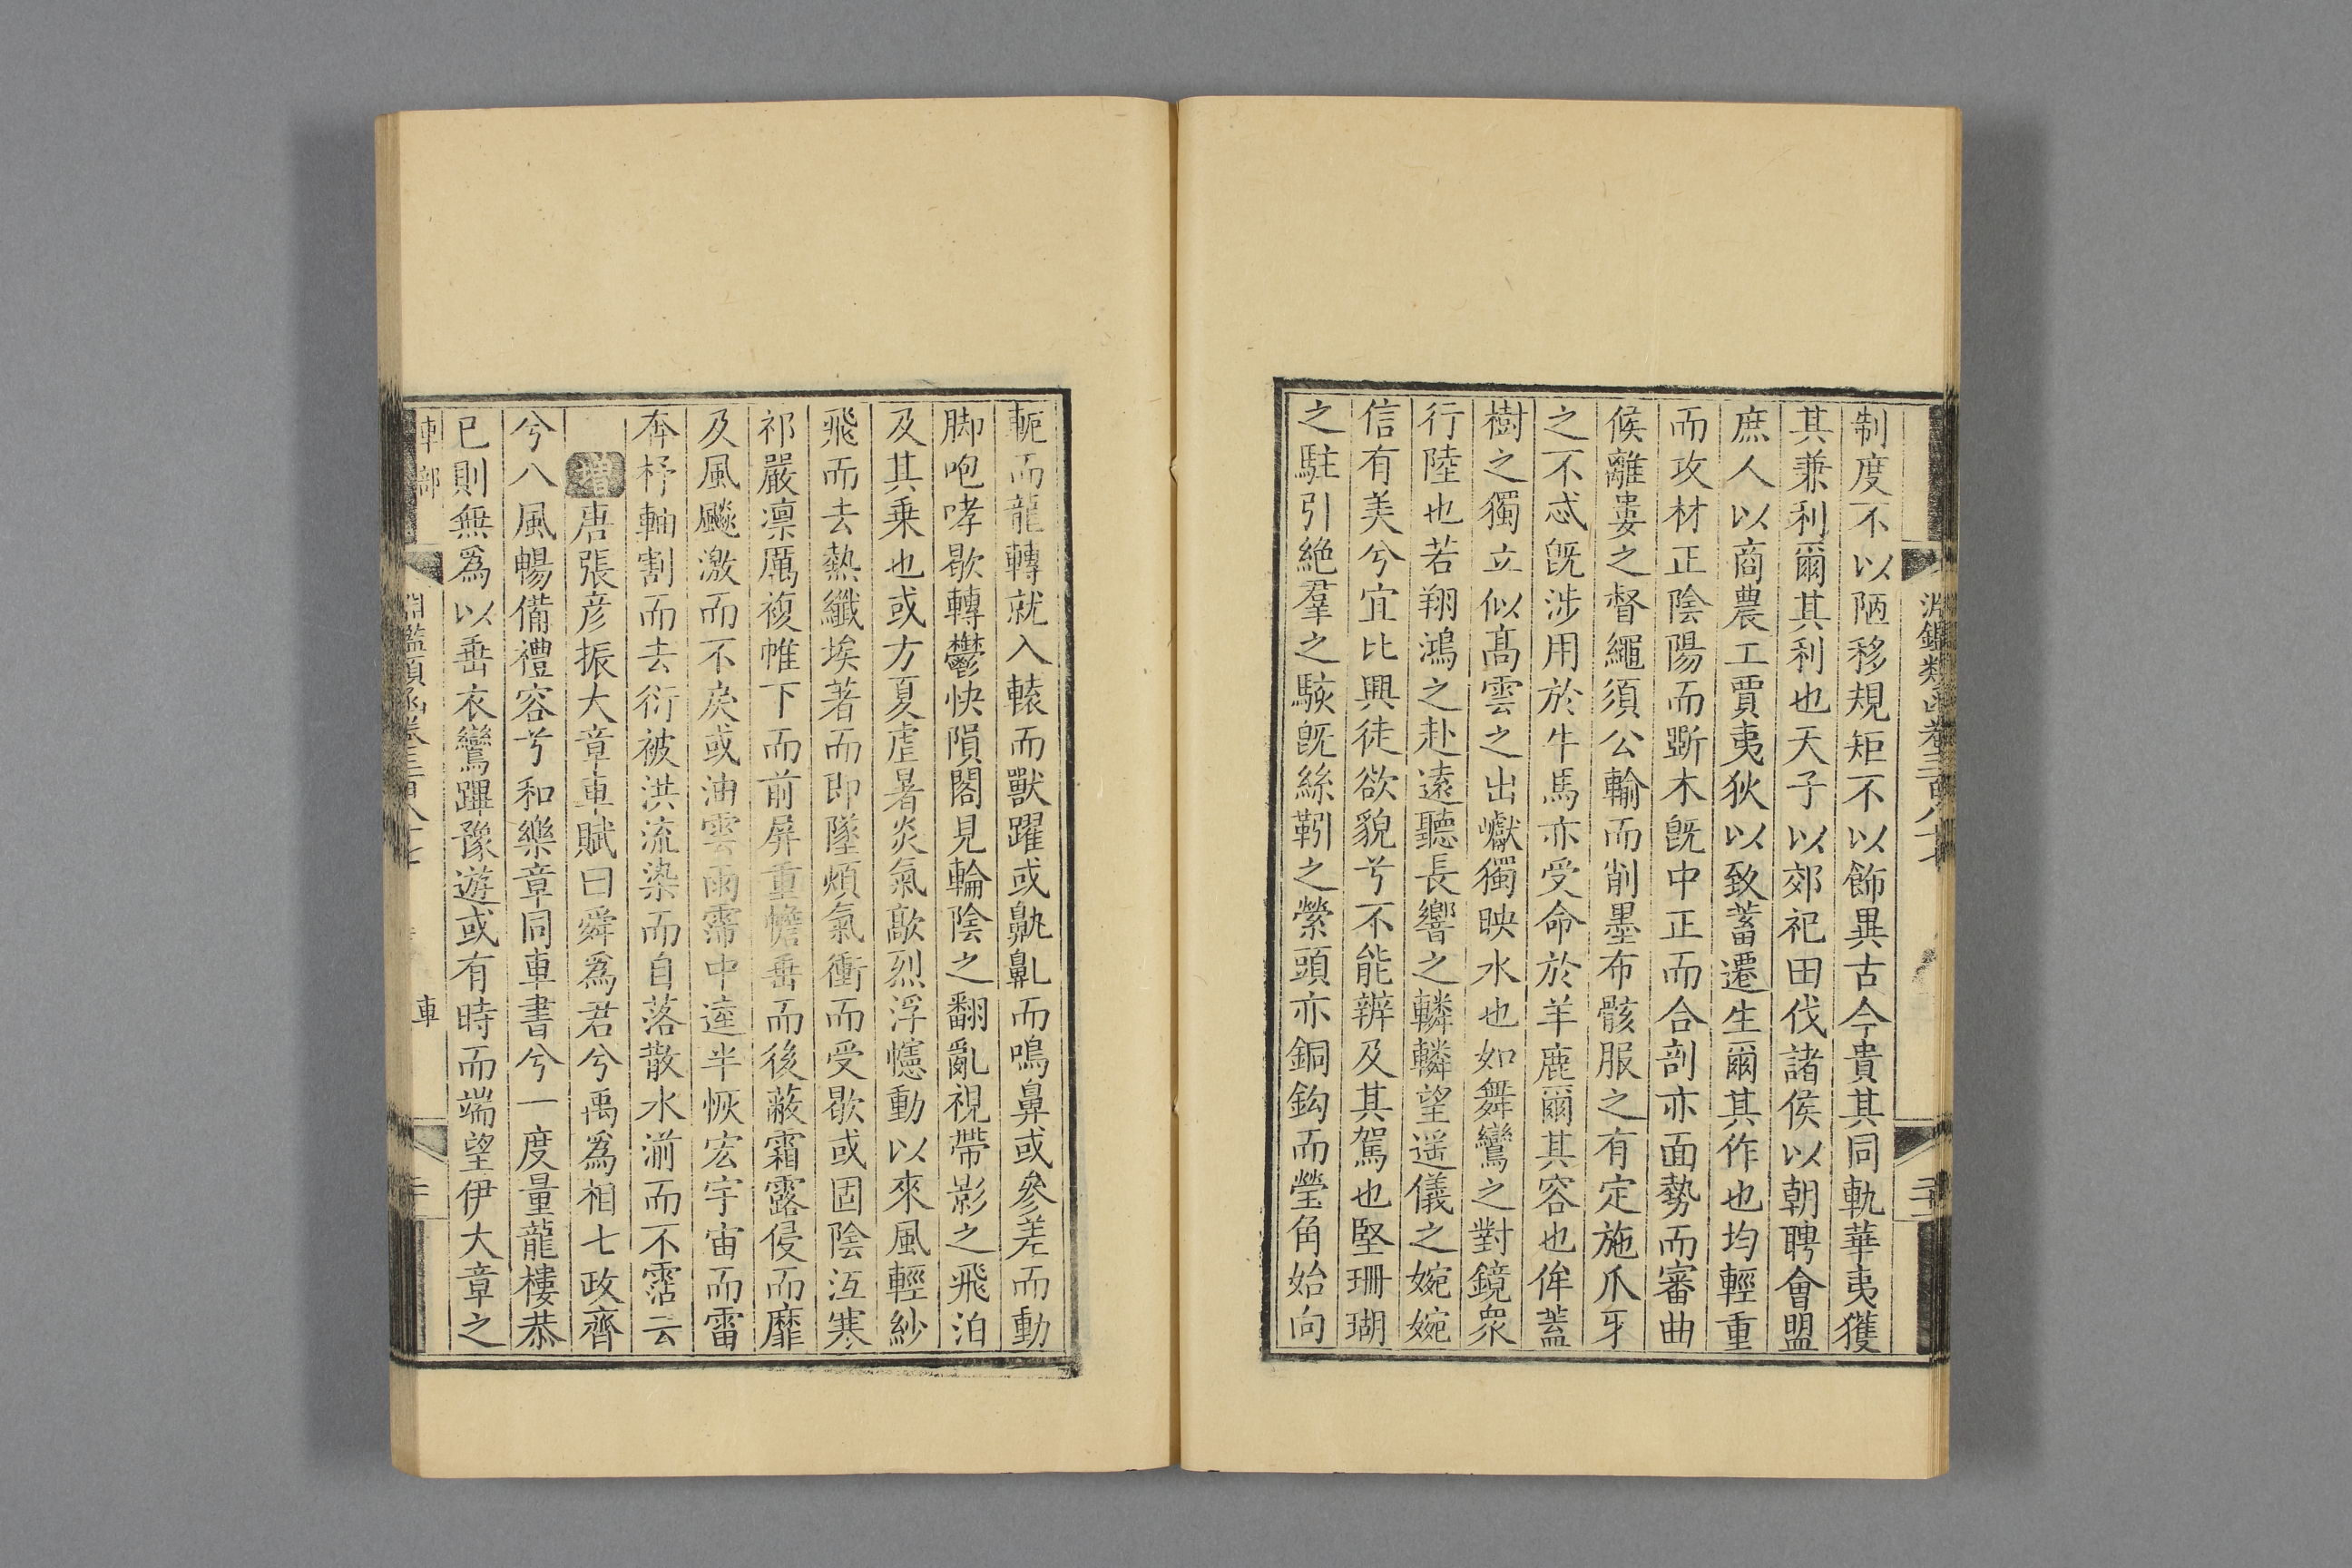 制度不以陋移規矩不以飾異古今貴其同軌華夷獲
其兼利爾其利也天子以郊祀田伐諸侯以朝聘會盟
庶人以商農工賈夷狄以致蓄遷生爾其作也均輕重
而攻材正陰陽而斲木旣中正而合剖亦面勢而審曲
候離婁之督繩須公輸而削墨布骸服之有定施爪牙
之不忒旣涉用於牛馬亦受命於羊鹿爾其容也侔蓋
樹之獨立似髙雲之出巘獨映水也如舞鸞之對鏡衆
行陸也若翔鴻之赴遠聽長響之轔轔望遥儀之婉婉
信有美兮宜比興徒欲貌兮不能辨及其駕也堅珊瑚
之駐引絶羣之駭旣絲靷之縈頭亦銅鈎而瑩角始向
軛而龍轉就入轅而獸躍或鼿鼽而鳴鼻或參差而動
脚咆哮歇轉欝怏隕閣見輪陰之翻亂視帶影之飛泊
及其乗也或方夏虐暑炎氣歊烈浮幰動以來風輕紗
飛而去熱纖埃著而即墜煩氣衝而受歇或固陰冱寒
祁嚴凛厲複帷下而前屏重幨垂而後蔽霜露侵而靡
及風飈激而不戾或油雲雨霈中逵半恢宏宇宙而霤
奔杼軸割而去衍被洪流染而自落散水湔而不霑云
增唐張彦振大章車賦曰舜爲君兮禹爲相七政齊
兮八風暢備禮容兮和樂章同車書兮一度量龍樓恭
已則無爲以垂衣鸞蹕豫遊或有時而端望伊大章之
車部
淵鑑類函卷三百八十七
車